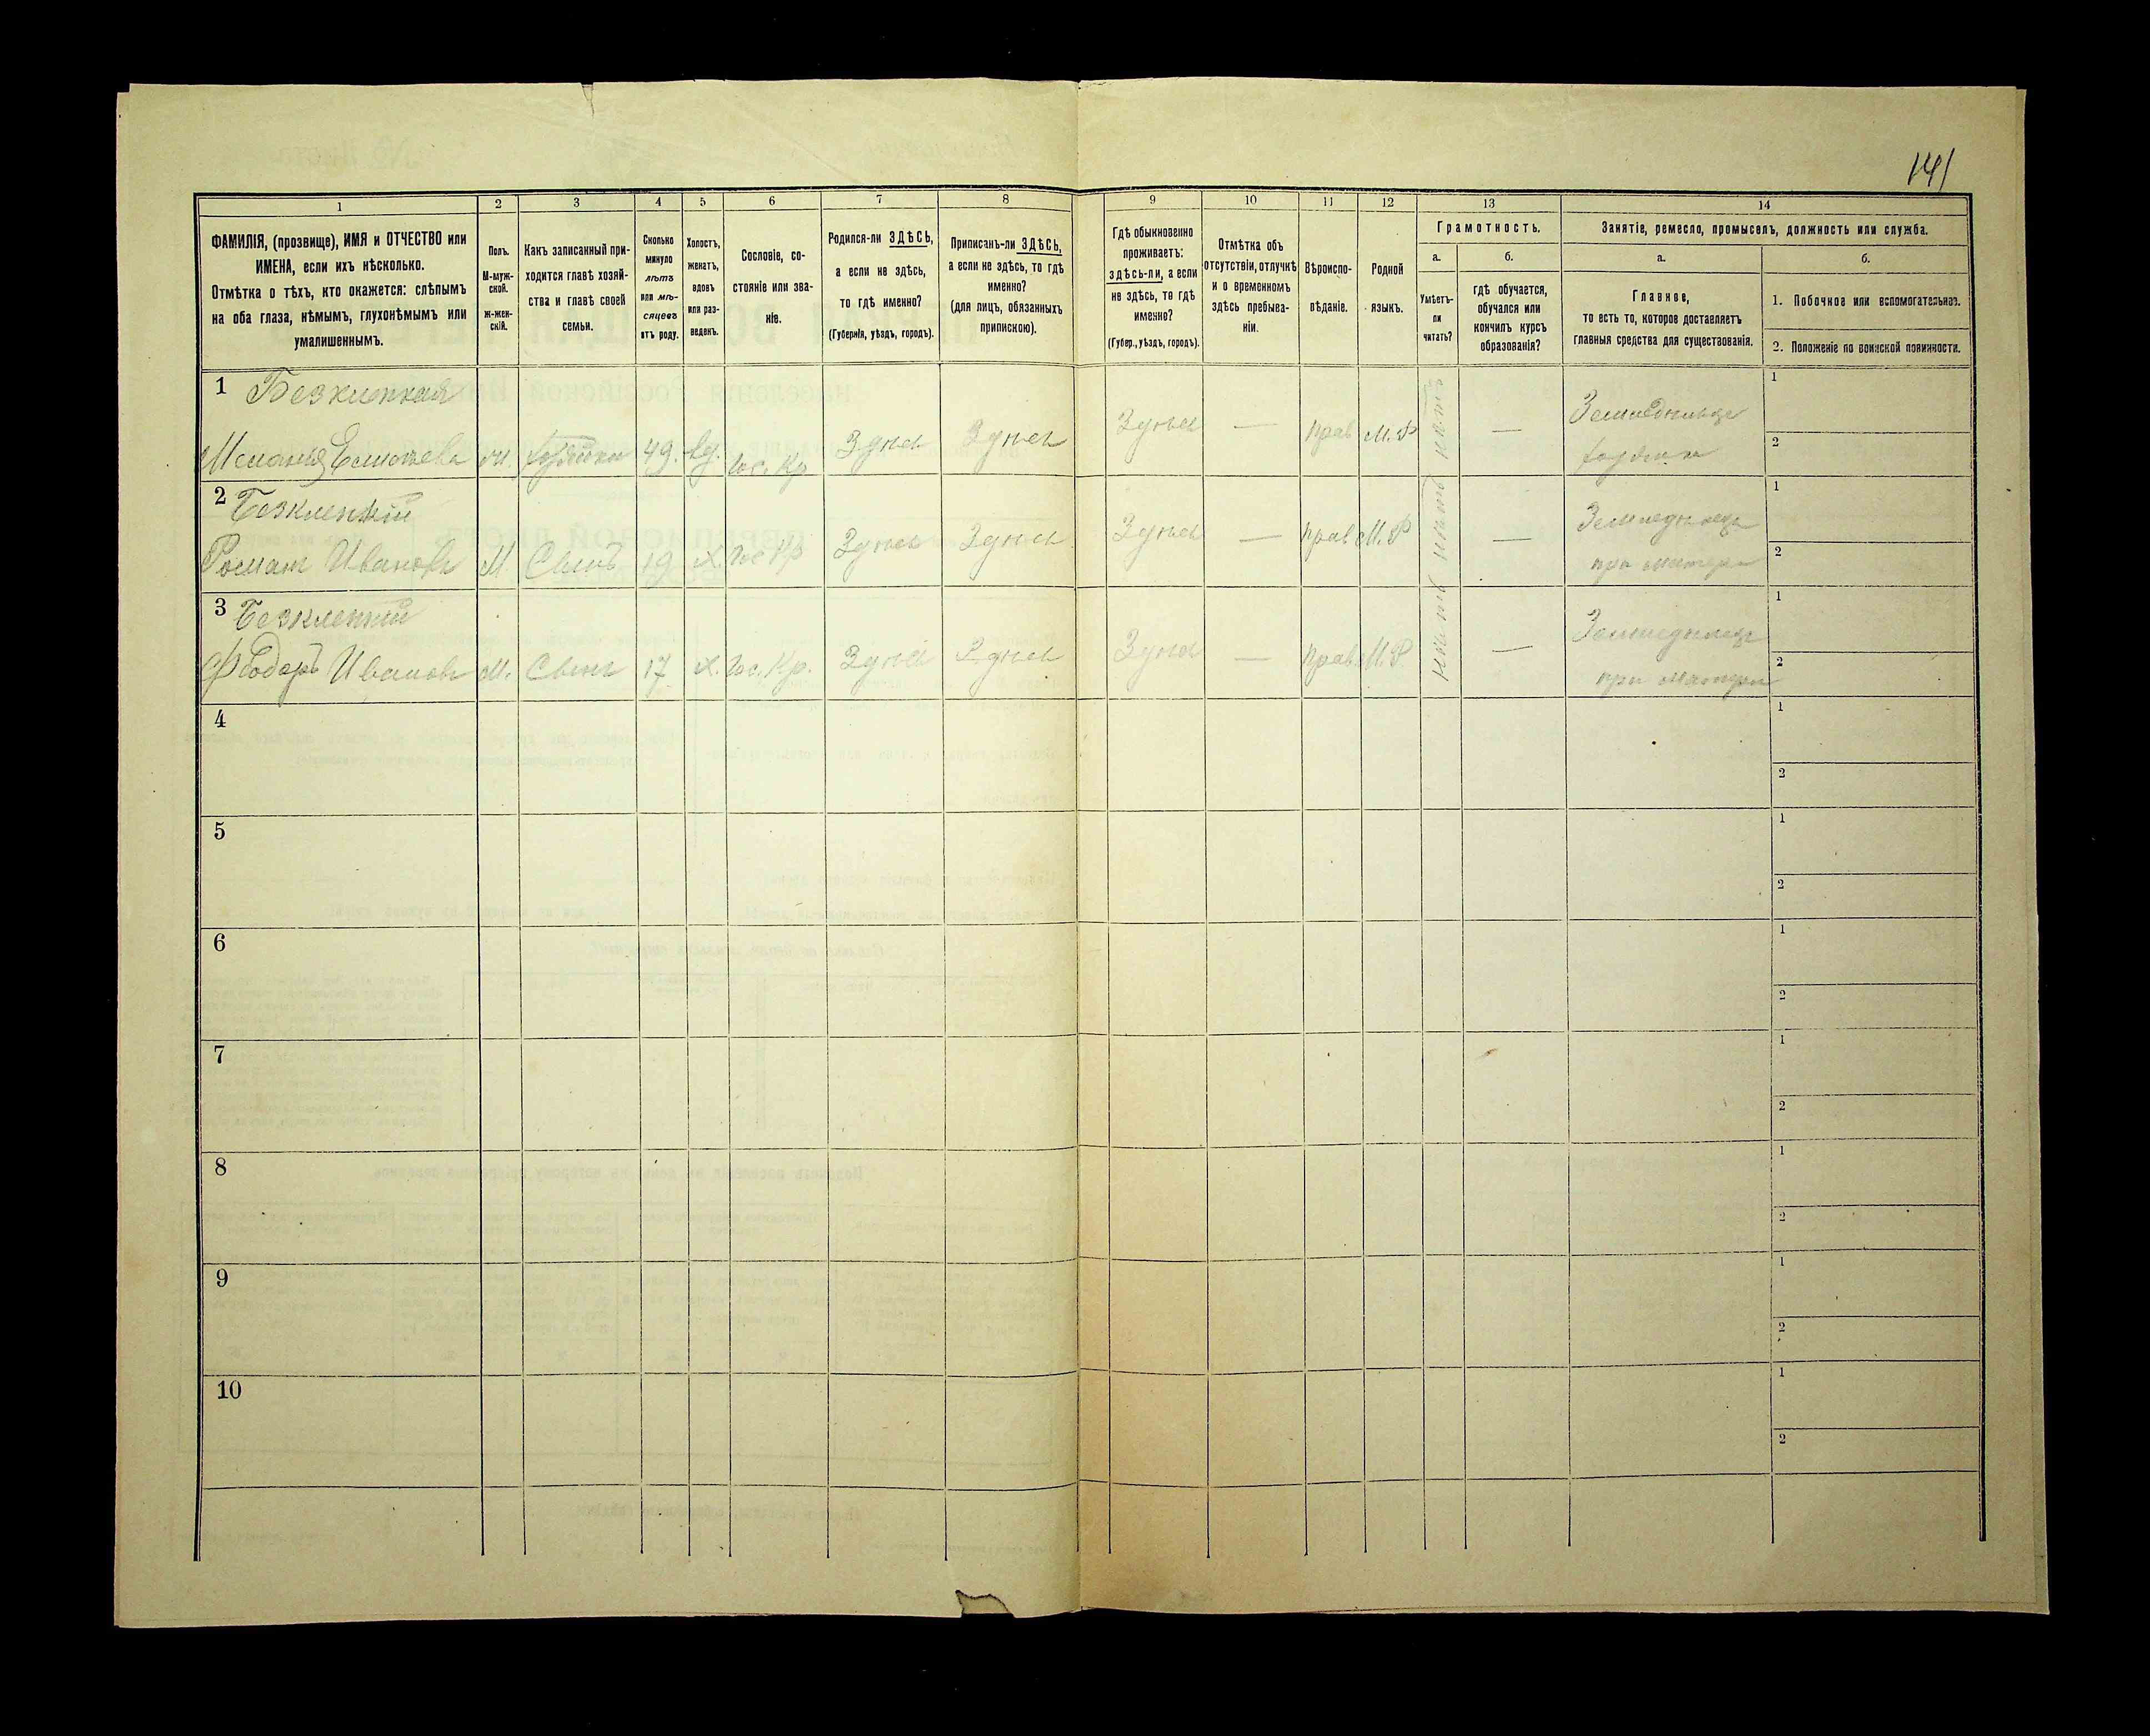 141
1
2
3
4
5
6
7
8
9
10
11
12
13
14
ФАМИЛІЯ, (прозвище), ИМЯ и ОТЧЕСТВО или
ИМЕНА, если ихъ нѣсколько.
Отмѣтка о тѣхъ, кто окажется: слѣпымъ
на оба глаза, нѣмымъ, глухонѣмымъ или
умалишеннымъ.
Полъ.
М-муж-
ской.
ж-жен-
скій.
Какъ записанный при-
ходится главѣ хозяй-
ства и главѣ своей
семьи.
Сколько
минуло
лѣтъ
или мѣ-
сяцевъ
отъ роду.
Холостъ,
женатъ,
вдовъ
или раз-
веденъ.
Сословіе, со-
стояніе или зва-
ніе.
Родился-ли ЗДѢСЬ,
а если не здѣсь,
то гдѣ именно?
(Губернія, уѣздъ, городъ).
Приписанъ-ли ЗДѢСЬ,
а если не здѣсь, то гдѣ
именно?
(для лицъ, обязанныхъ
припискою).
Гдѣ обыкновенно
проживаетъ:
здѣсь-ли, а если
не здѣсь, то гдѣ
именно?
(Губер., уѣздъ, городъ).
Отмѣтка объ
отсутствіи, отлучкѣ
и о временномъ
здѣсь пребыва-
ніи.
Вѣроиспо-
вѣданіе.
Родной
языкъ.
Грамотность.
а.
Умѣетъ-
ли
читать?
б.
гдѣ обучается,
обучался или
кончилъ курсъ
образованія?
Занятіе, ремесло, промыселъ, должность или служба.
а.
Главное,
то есть то, которое доставляетъ
главныя средства для существованія.
б.
1. Побочное или вспомогательное.
2. Положеніе по воинской повинности.
1 Безклепкая
49. вд. Гос. Кр Здѣсь Здѣсь Здѣсь — прав М. Р нѣтъ — Земледѣлецъ
1
2
2 Безклепкій
Романъ Ивановъ М Сынъ 19 Х. Гос Кр Здѣсь Здѣсь Здѣсь — прав М. Р нѣтъ — Земледѣлецъ
при матери
1
2
3 Безклепкій
Ѳеодоръ Ивановъ М. Сынъ 17 Х. Гос. Кр. Здѣсь Здѣсь Здѣсь — прав. М. Р нѣтъ — Земледѣлецъ
при матери
1
2
4
1
2
5
1
2
6
1
2
7
1
2
8
1
2
9
1
2
10
1
2